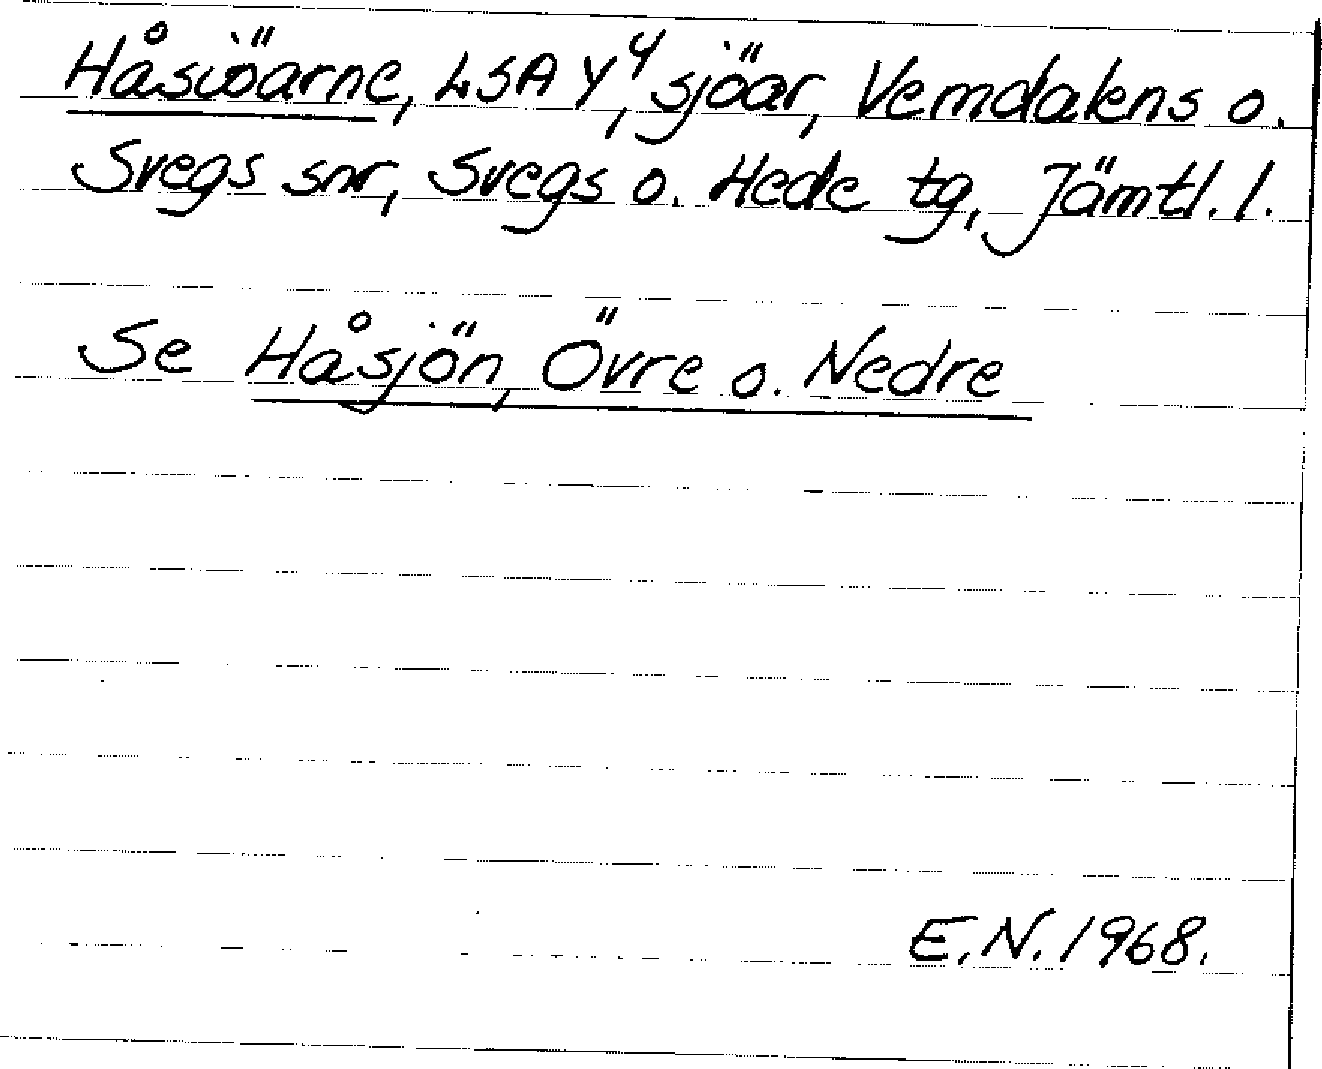 Håsiöarne, LSA Y⁴, sjöar, Vemdalens o.
Svegs snr, Svegs o. Hede tg, Jämtl. l.
Se Håsjön, Övre o. Nedre
E.N. 1968.